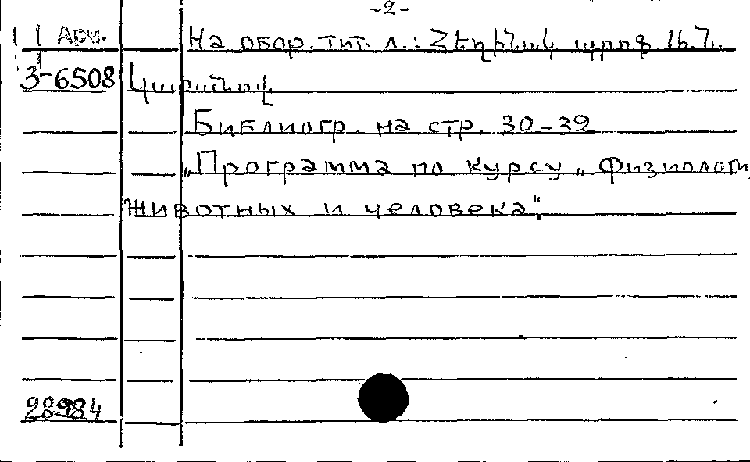 -2-
Арм. На обор. тит. л.: Հեղինակ պրոֆ
3-6508
Библиогр. на стр. 30-39
„Программа по курсу „ Физиологи
животных и человека".
28984